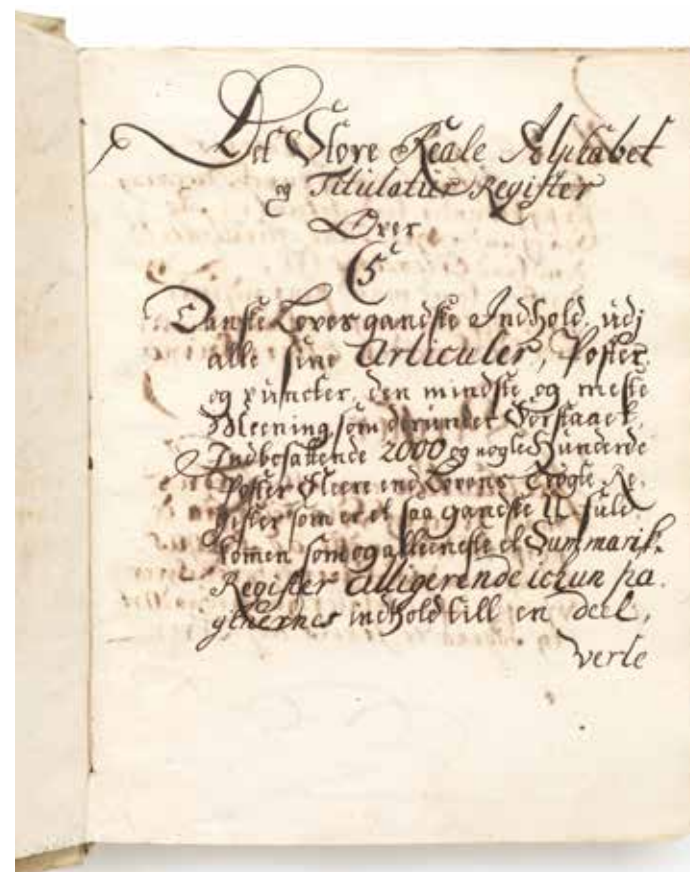 Det Store Reale Alphabet
og Titulatur Register
Over
C 5
Danske Loves gandske Indhold, udj
alle sine Articuler, Poster
og puncter, den mindste og meste
Meening, som derunder Forstaaes,
Indbefattende 2000 og nogle Hunderde
Poster fleere end Lovens Trögte Re-
gister som er et saa gandske U fuld-
komen som og alleeneste et Summarisk
Register alligerende ickun pa-
ginernes indhold till en deel,
verle